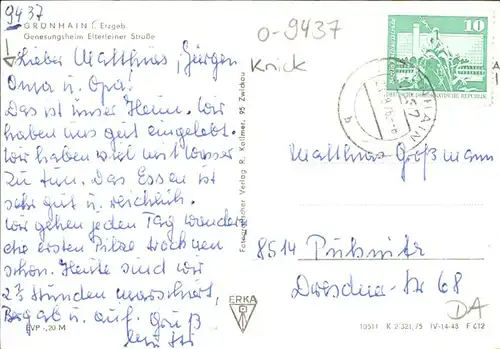 9437
GRÜNHAIN i. Erzgeb.
Genesungsheim Elterleiner Straße
Lieber Matthias, Jürgen
Oma u. Opa!
Das ist unser Heim. Wir
haben uns gut eingelebt.
Wir haben viel mit Wasser
zu tun. Das Essen ist
sehr gut u. reichlich.
Wir gehen jeden Tag wandern
die ersten Pilze wachsen
schon. Heute sind wir
2½ Stunden marschiert,
Berg ab u. auf. Gruß
EVP -,20 M
Fotografischer Verlag R. Kallmer, 95 Zwickau
ERKA
0-9437
Knick
10
DEUTSCHE DEMOKRATISCHE REPUBLIK
Matthias Großmann
8514 Pulsnitz
Dresdner-Str 68
DA
10511 K 2/321/75 IV-14-48 F 612